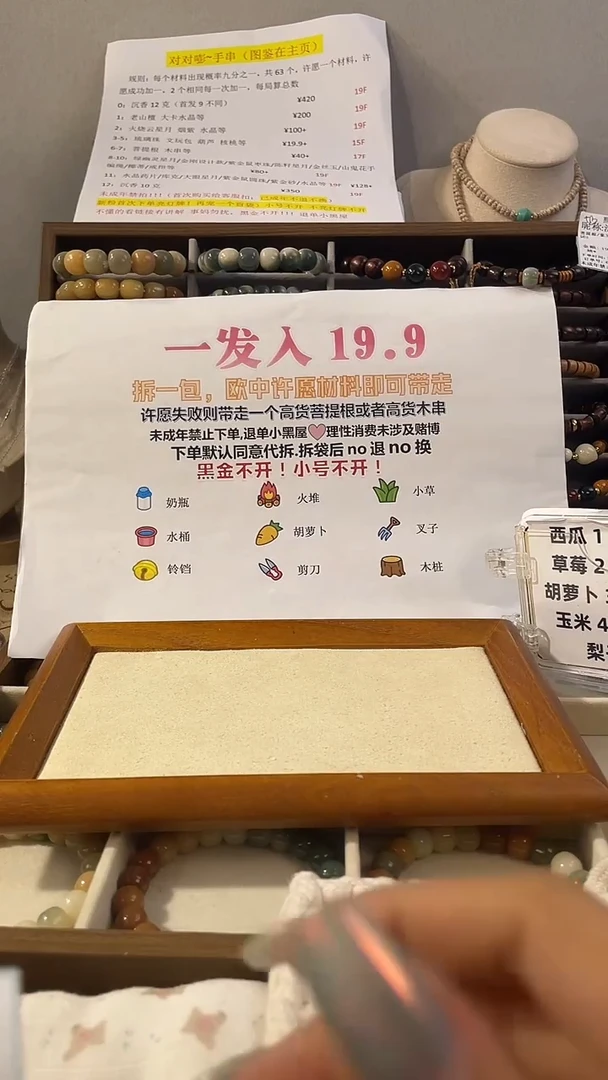 对对嘭~手串（图鉴在主页）
规则：每个材料出现概率九分之一，共63个，许愿一个材料，许
愿成功加一，2个相同每一次加一，每局算总数
0：沉香12克（首发9不同） ¥420 19F
1：老山檀 大卡水晶等 ¥200 19F
2：火烧云星月 烟紫 水晶等 ¥100+ 19F
3-5：琉璃珠 文玩包 葫芦 核桃等 ¥19.9+ 15F
6-7：菩提根 木串等 ¥40+ 17F
¥80+ 19F ¥128+
12：沉香10克 ¥350 19F
一发入 19.9
拆一包，欧中许愿材料即可带走
许愿失败则带走一个高货菩提根或者高货木串
未成年禁止下单,退单小黑屋理性消费未涉及赌博
下单默认同意代拆.拆袋后no退no换
黑金不开！小号不开！
奶瓶 火堆 小草
水桶 胡萝卜 叉子
铃铛 剪刀 木桩
西瓜 1
草莓 2
胡萝卜
玉米 4